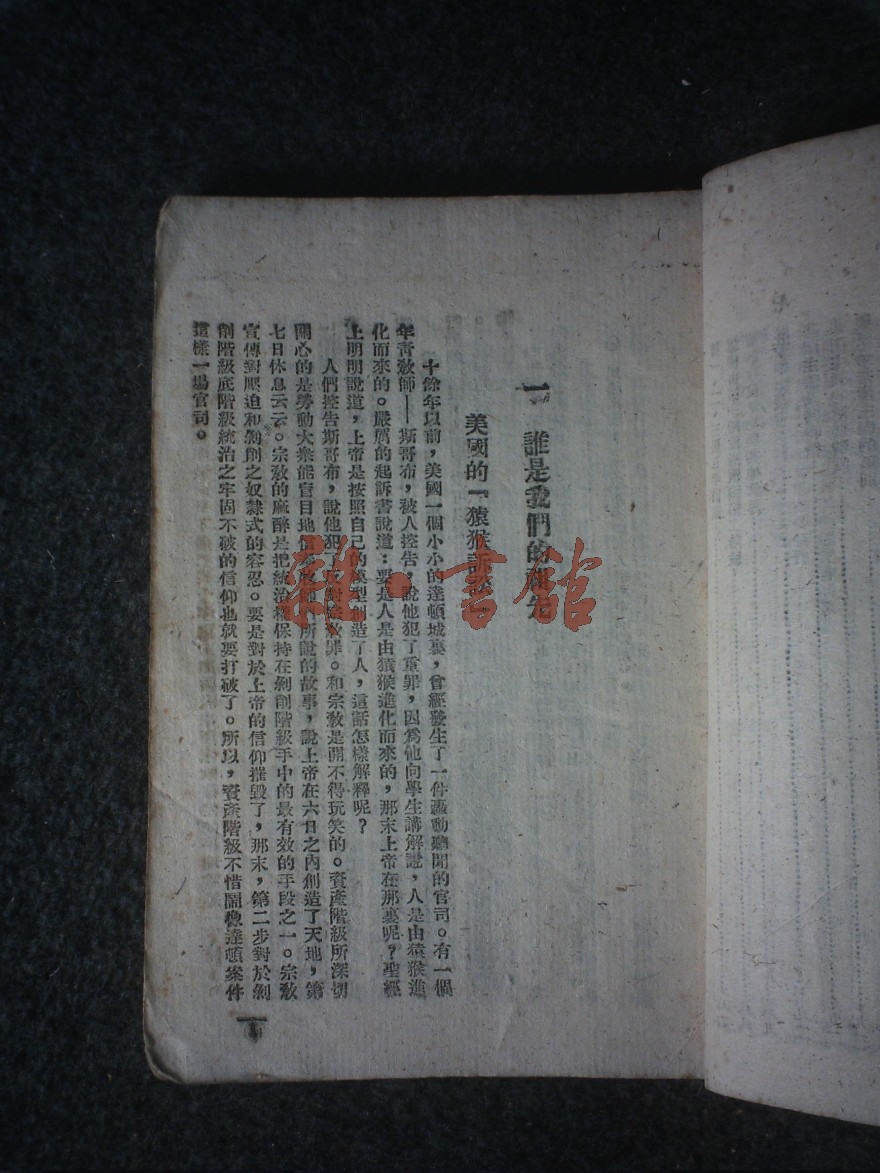 一 誰是我們的祖先
美國的『猿猴訴訟』
十餘年以前，美國一個小小的達頓城裏，曾經發生了一件轟動聽聞的官司。有一個
年青教師——斯哥布，被人控告，說他犯了重罪，因爲他向學生講解說，人是由猿猴進
化而來的。嚴厲的起訴書說道：要是人是由猿猴進化而來的，那末上帝在那裏呢？聖經
上明明說道，上帝是按照自己的模型創造了人，這話怎樣解釋呢？
人們控告斯哥布，說他犯了反對宗教罪。和宗教是開不得玩笑的。資產階級所深切
關心的是勞動大衆能盲目地信 所說的故事，說上帝在六日之內創造了天地，第
七日休息云云。宗教的麻醉是把統治權保持在剝削階級手中的最有效的手段之一。宗教
宣傳對壓迫和剝削之奴隸式的容忍。要是對於上帝的信仰摧毀了，那末，第二步對於剝
削階級底階級統治之牢固不破的信仰也就要打破了。所以，資產階級不惜鬧像達頓案件
這樣一場官司。
一
雜·書館